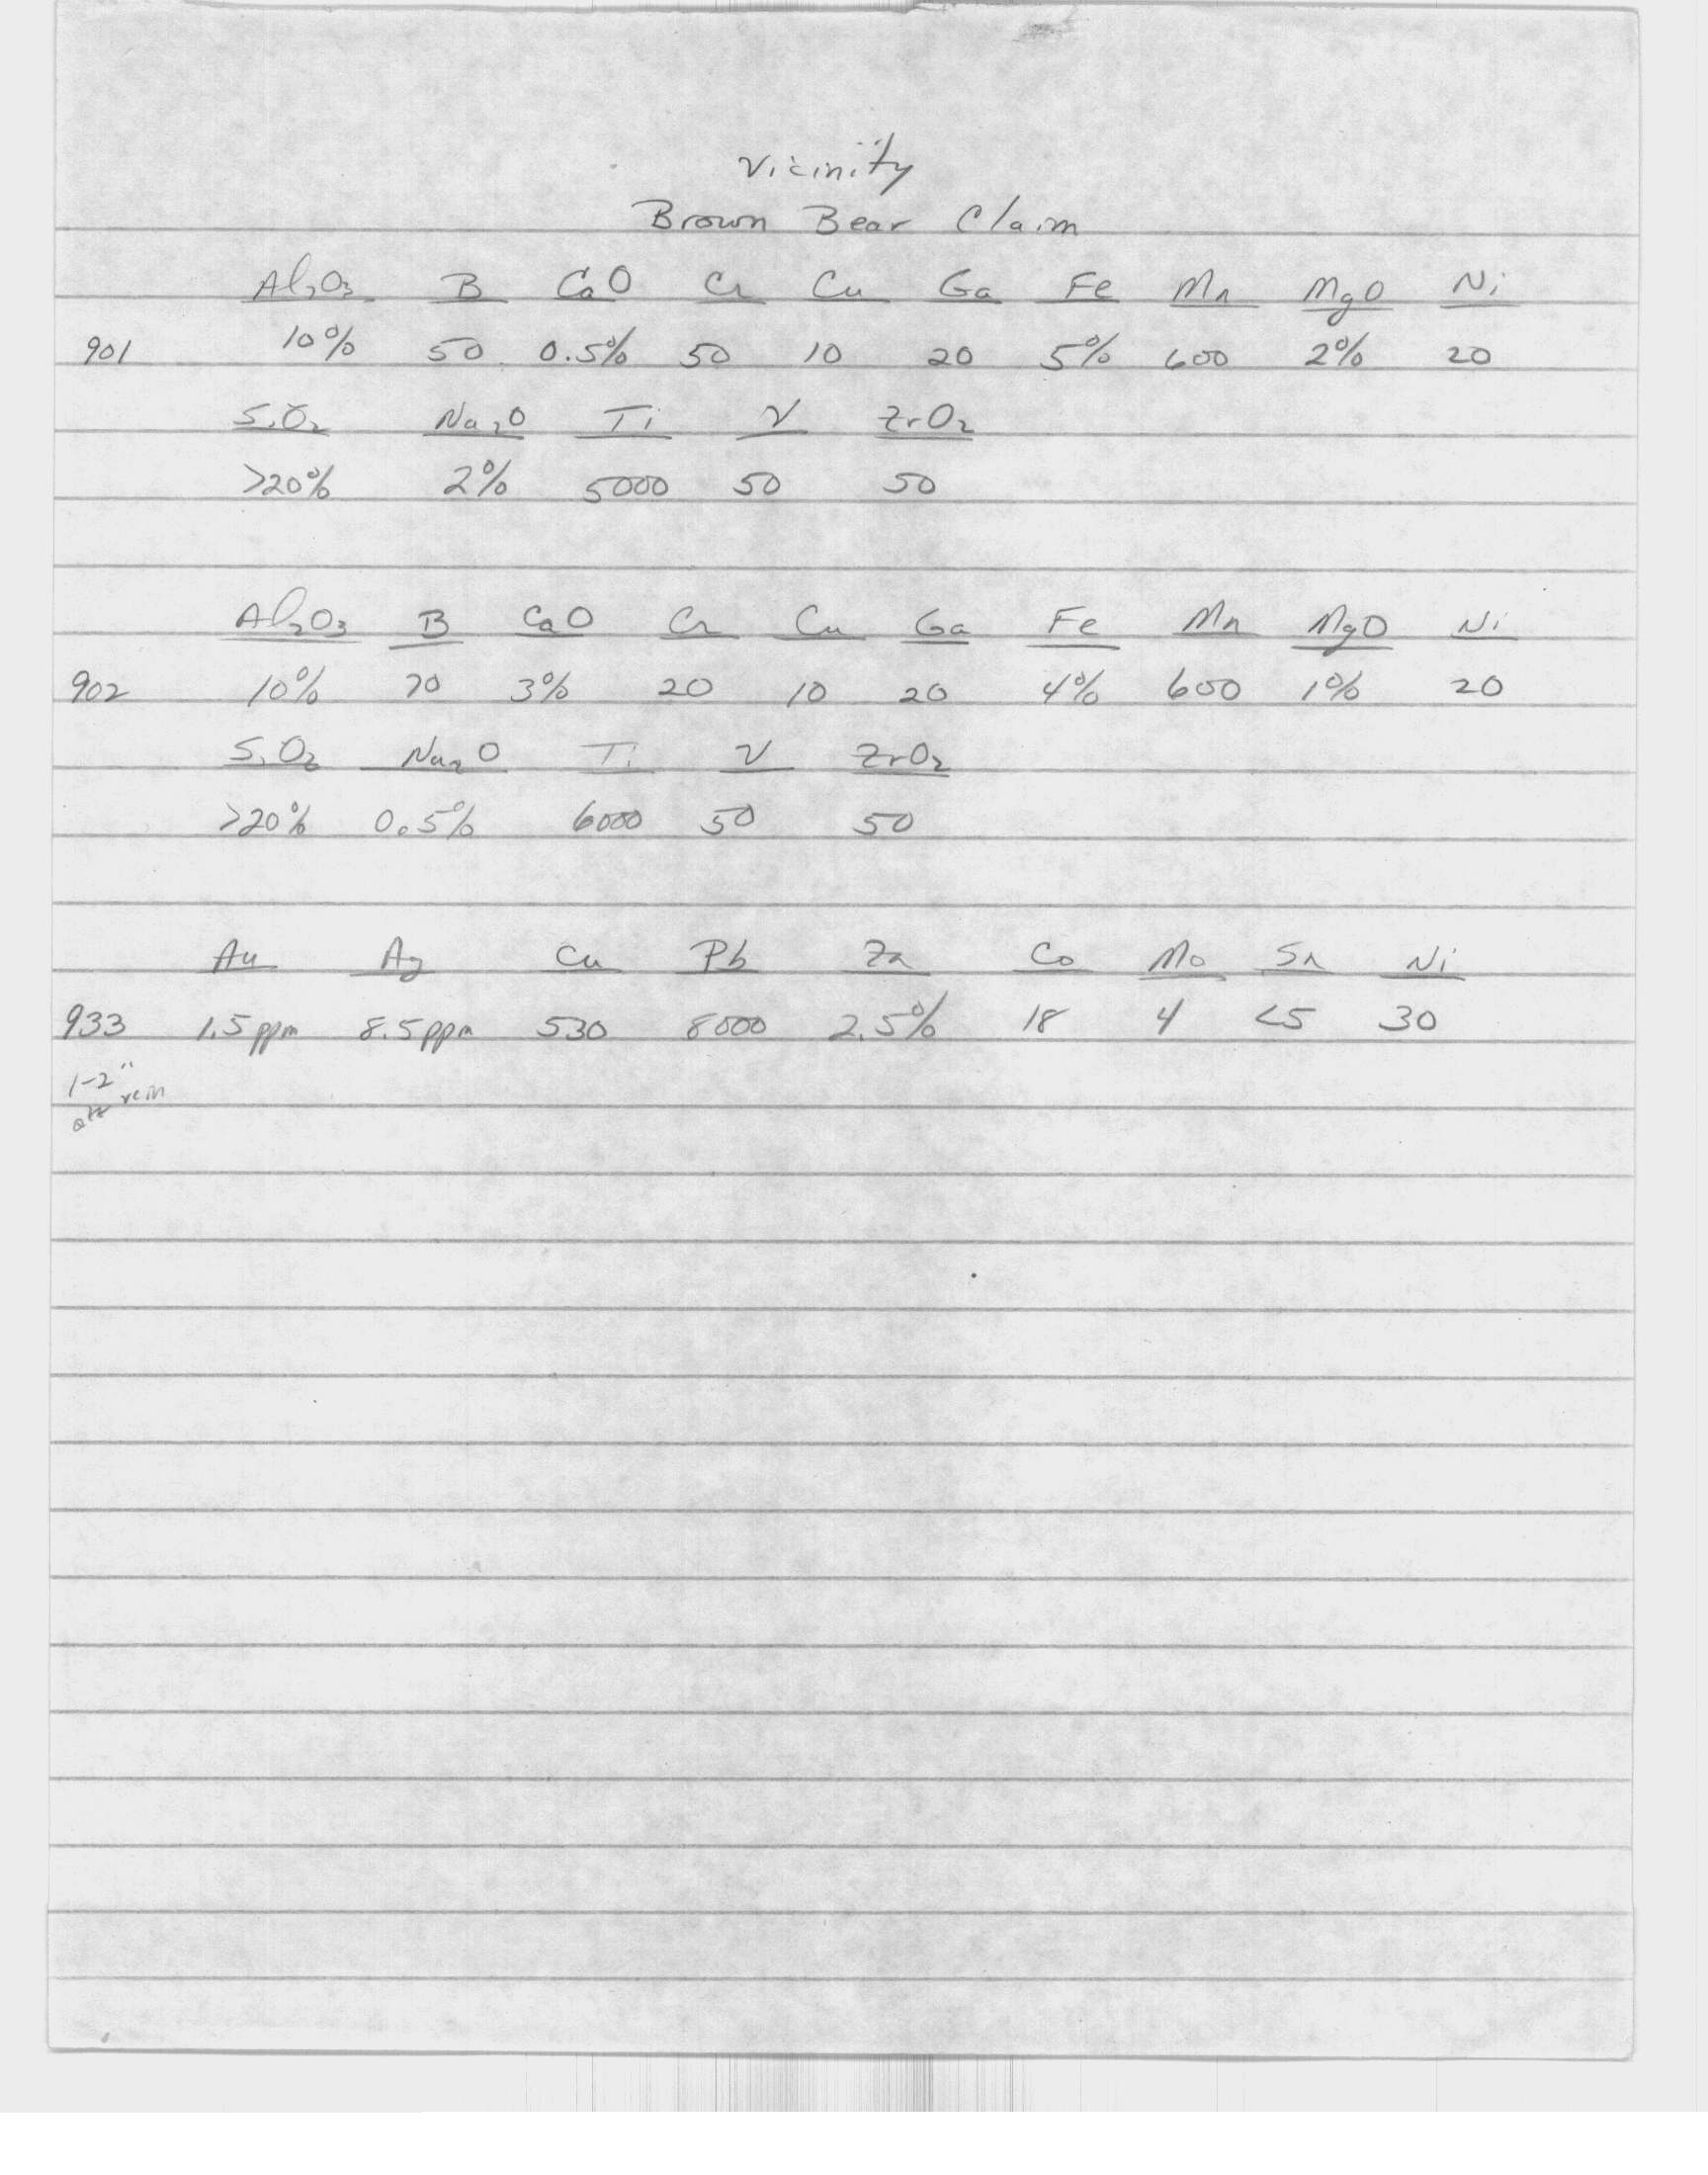 Vicinity
Brown Bear Claim
Al2O3 B CaO Cr Cu Ga Fe Mn MgO Ni
901 10% 50 0.5% 50 10 20 5% 600 2% 20
SiO2 Na2O Ti V ZrO2
>20% 2% 5000 50 50
Al2O3 B CaO Cr Cu Ga Fe Mn MgO Ni
902 10% 70 3% 20 10 20 4% 600 1% 20
SiO2 Na2O Ti V ZrO2
>20% 0.5% 6000 50 50
Au Ag Cu Pb Zn Co Mo Sn Ni
933 1.5 ppm 8.5 ppm 530 8000 2.5% 18 4 <5 30
1-2"
qtz vein